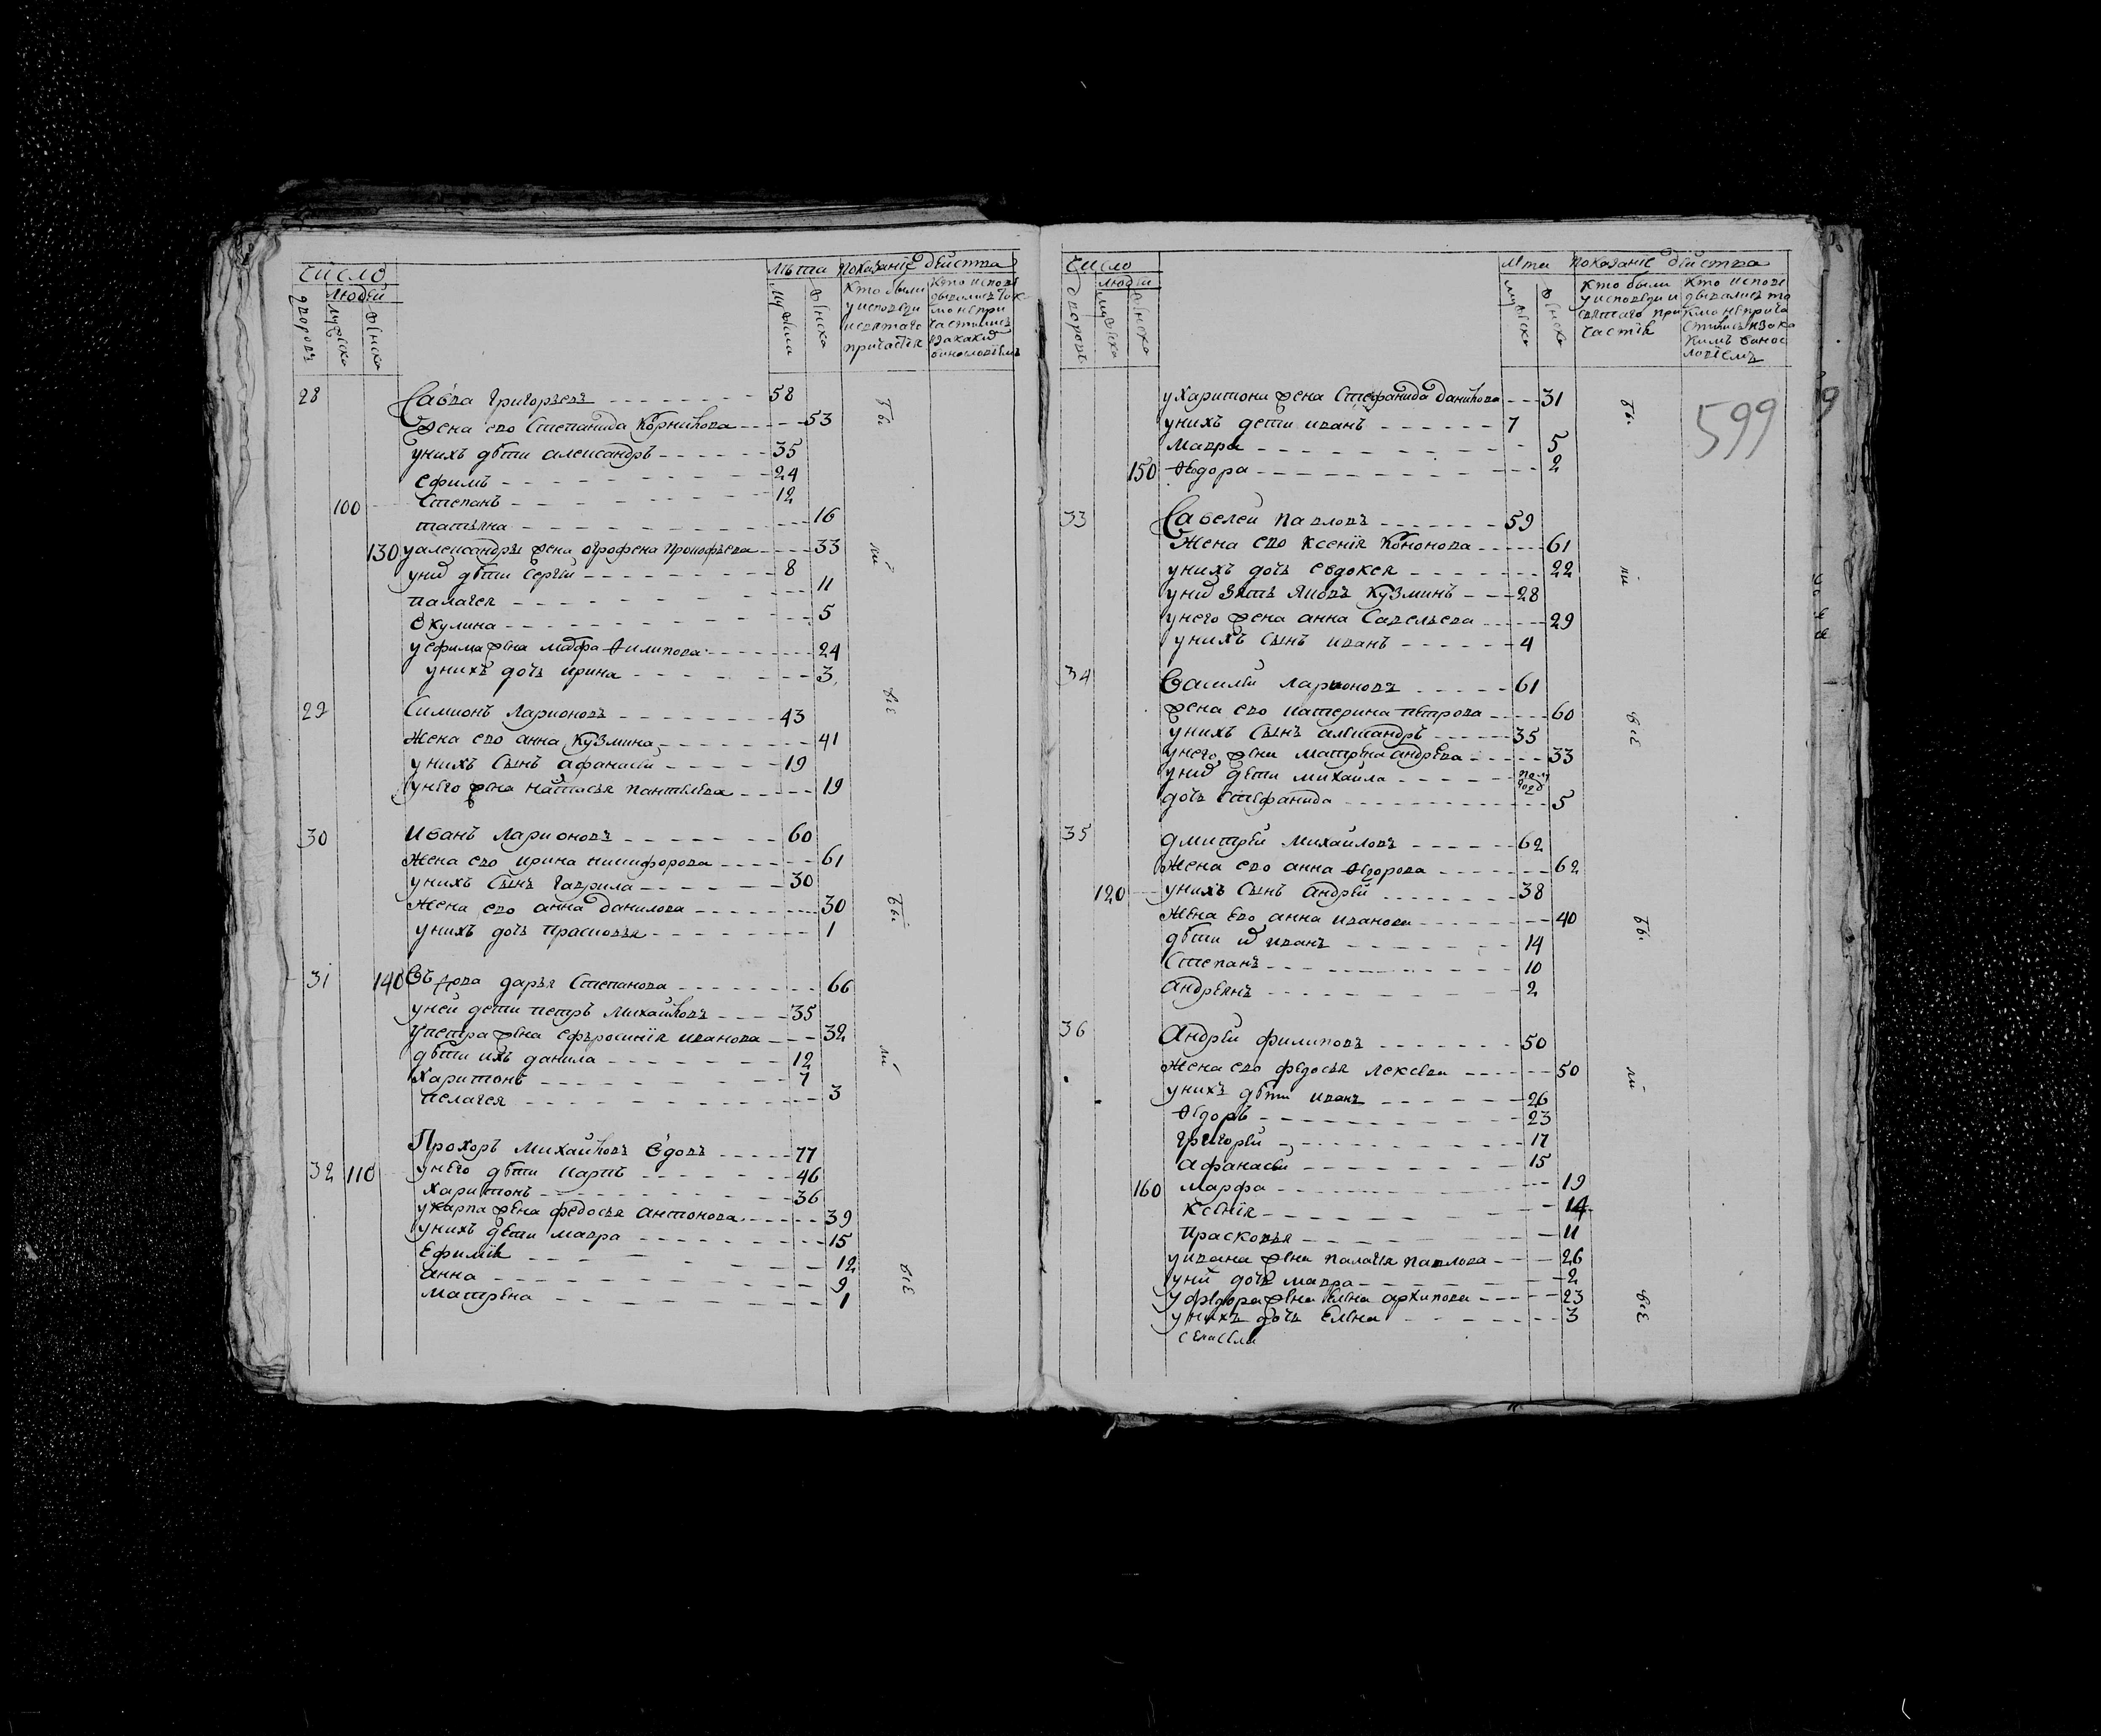 число
людей
дворовъ
мужеска
женска
лѣта
мужеска
женска
показаніе действа
кто были у исповеди и святаго причастія
кто исповедывались токмо не причастились и за каким винословіемъ
28 Савва григорьевъ 58
жена ево Степанида Корнилова 53
у нихъ дѣти александръ 35
ефимъ 24
100 Степанъ 12
татьяна 16
130 у александры жена огрофена прокофьева 33
у них дѣти Сергѣй 8
палагея 11
Окулина 5
у ефима жена марфа Филипова 24
у нихъ дочь ирина 3
29 Симионъ ларионовъ 43
жена ево анна кузмина 41
у нихъ Сынъ афанасей 19
у него жена настасья пантелева 19
30 иванъ ларионовъ 60
жена ево ирина никифорова 61
у нихъ Сынъ гаврила 30
жена ево анна данилова 30
у нихъ дочь прасковья 1
31 140 Въдова дарья Степанова 66
у ней дети петръ михайловъ 35
у петра жена ефъросинія иванова 32
дѣти ихъ данила 12
харитонъ 7
пелагея 3
Прохоръ михайловъ Вдовъ 77
32 110 у него дѣти карпъ 46
харитонъ 36
у карпа жена федосья антонова 39
у нихъ дети мавра 15
Ефимія 12
анна 9
матрена 1
бы
ли
всѣ
бы
ли
всѣ
число
людей
дворовъ
мужеска
женска
лета
мужеска
женска
показаніе действа
кто были у исповеди и святаго причастія
кто исповедывались токмо не причастились и за каким винословіемъ
599
у харитона жена Стефанида данилова 31
у нихъ дети иванъ 7
мавра 5
150 Федора 2
33 Савелей павловъ 59
жена ево ксенія кононова 61
у нихъ дочь евдокея 22
у них зять яковъ кузминъ 28
у него жена анна Савельева 29
у нихъ Сынъ иванъ 4
34 Василей ларионовъ 61
жена ево катерина петрова 60
у нихъ Сынъ александръ 35
у него жена матрена андрева 33
у них дети михаила полугод
дочь стефанида 5
35 дмитрей михайловъ 62
жена ево анна Федорова 62
120 у нихъ Сынъ андрей 38
жена ево анна иванова 40
дѣти их иванъ 14
Степанъ 10
андреянъ 2
36 Андрей филиповъ 50
жена ево федосья лексева 50
у нихъ дѣти иванъ 26
Федоръ 23
григорей 17
афанасей 15
160 марфа 19
ксенія 14
прасковья 11
у ивана жена палагея павлова 26
у ни дочь мавра 2
у федора жена Елена архипова 23
у нихъ дочь Елена 3
бы
ли
всѣ
бы
ли
всѣ